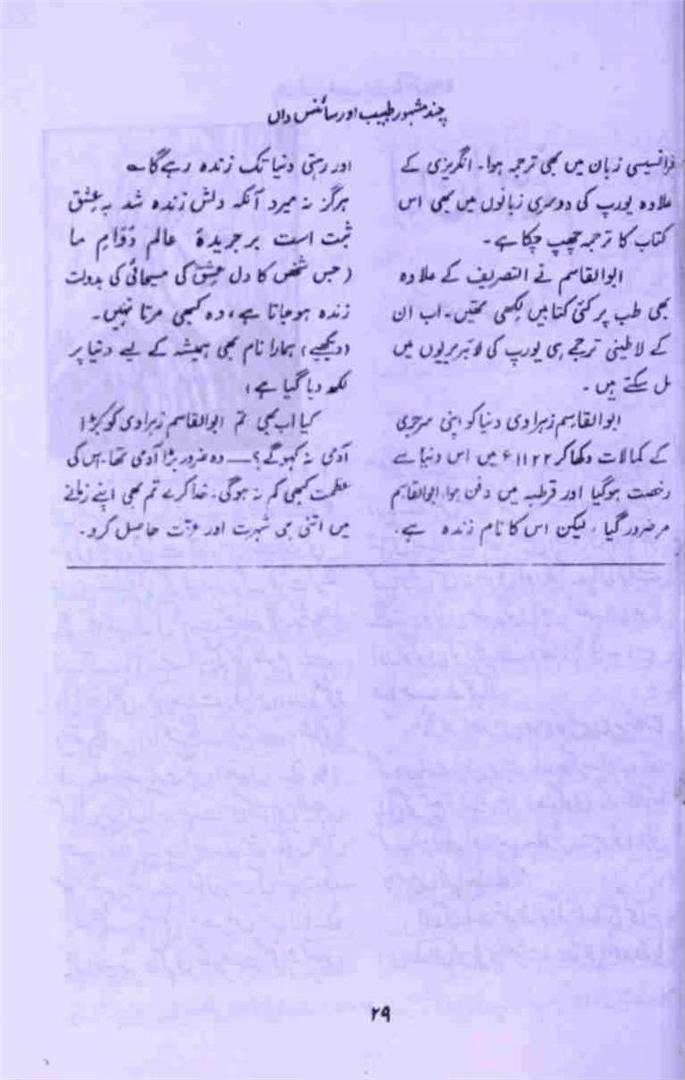 چند مشہور طبیب اور سائنس داں
فرانسیسی زبان میں بھی ترجمہ ہوا۔ انگریزی کے
علاوہ یورپ کی دوسری زبانوں میں بھی اس
کتاب کا ترجمہ چھپ چکا ہے۔
ابوالقاسم نے التصریف کے علاوہ
بھی طب پر کئی کتابیں لکھی تھیں۔ اب ان
کے لاطینی ترجمے ہی یورپ کی لائبریریوں میں
مل سکتے ہیں۔
ابوالقاسم زہراوی دنیا کو اپنی سرجری
کے کمالات دکھا کر ۱۱۲۲ء میں اس دنیا سے
رخصت ہوگیا اور قرطبہ میں دفن ہوا۔ ابوالقاسم
مر ضرور گیا، لیکن اس کا نام زندہ ہے۔
اور رہتی دنیا تک زندہ رہے گا ؎
ہرگز نہ میرد آنکہ دلش زندہ شد بہ عشق
ثبت است بر جریدۂ عالم دوام ما
(جس شخص کا دل عشق کی مسیحائی کی بدولت
زندہ ہوجاتا ہے، وہ کبھی مرتا نہیں۔
(دیکھیے) ہمارا نام بھی ہمیشہ کے لیے دنیا پر
لکھ دیا گیا ہے)
کیا اب بھی تم ابوالقاسم زہراوی کو بڑا
آدمی نہ کہوگے؟ــــ وہ ضرور بڑا آدمی تھا۔ اس کی
عظمت کبھی کم نہ ہوگی۔ خدا کرے تم بھی اپنے زمانے
میں اتنی ہی شہرت اور عزت حاصل کرو۔
۲۹